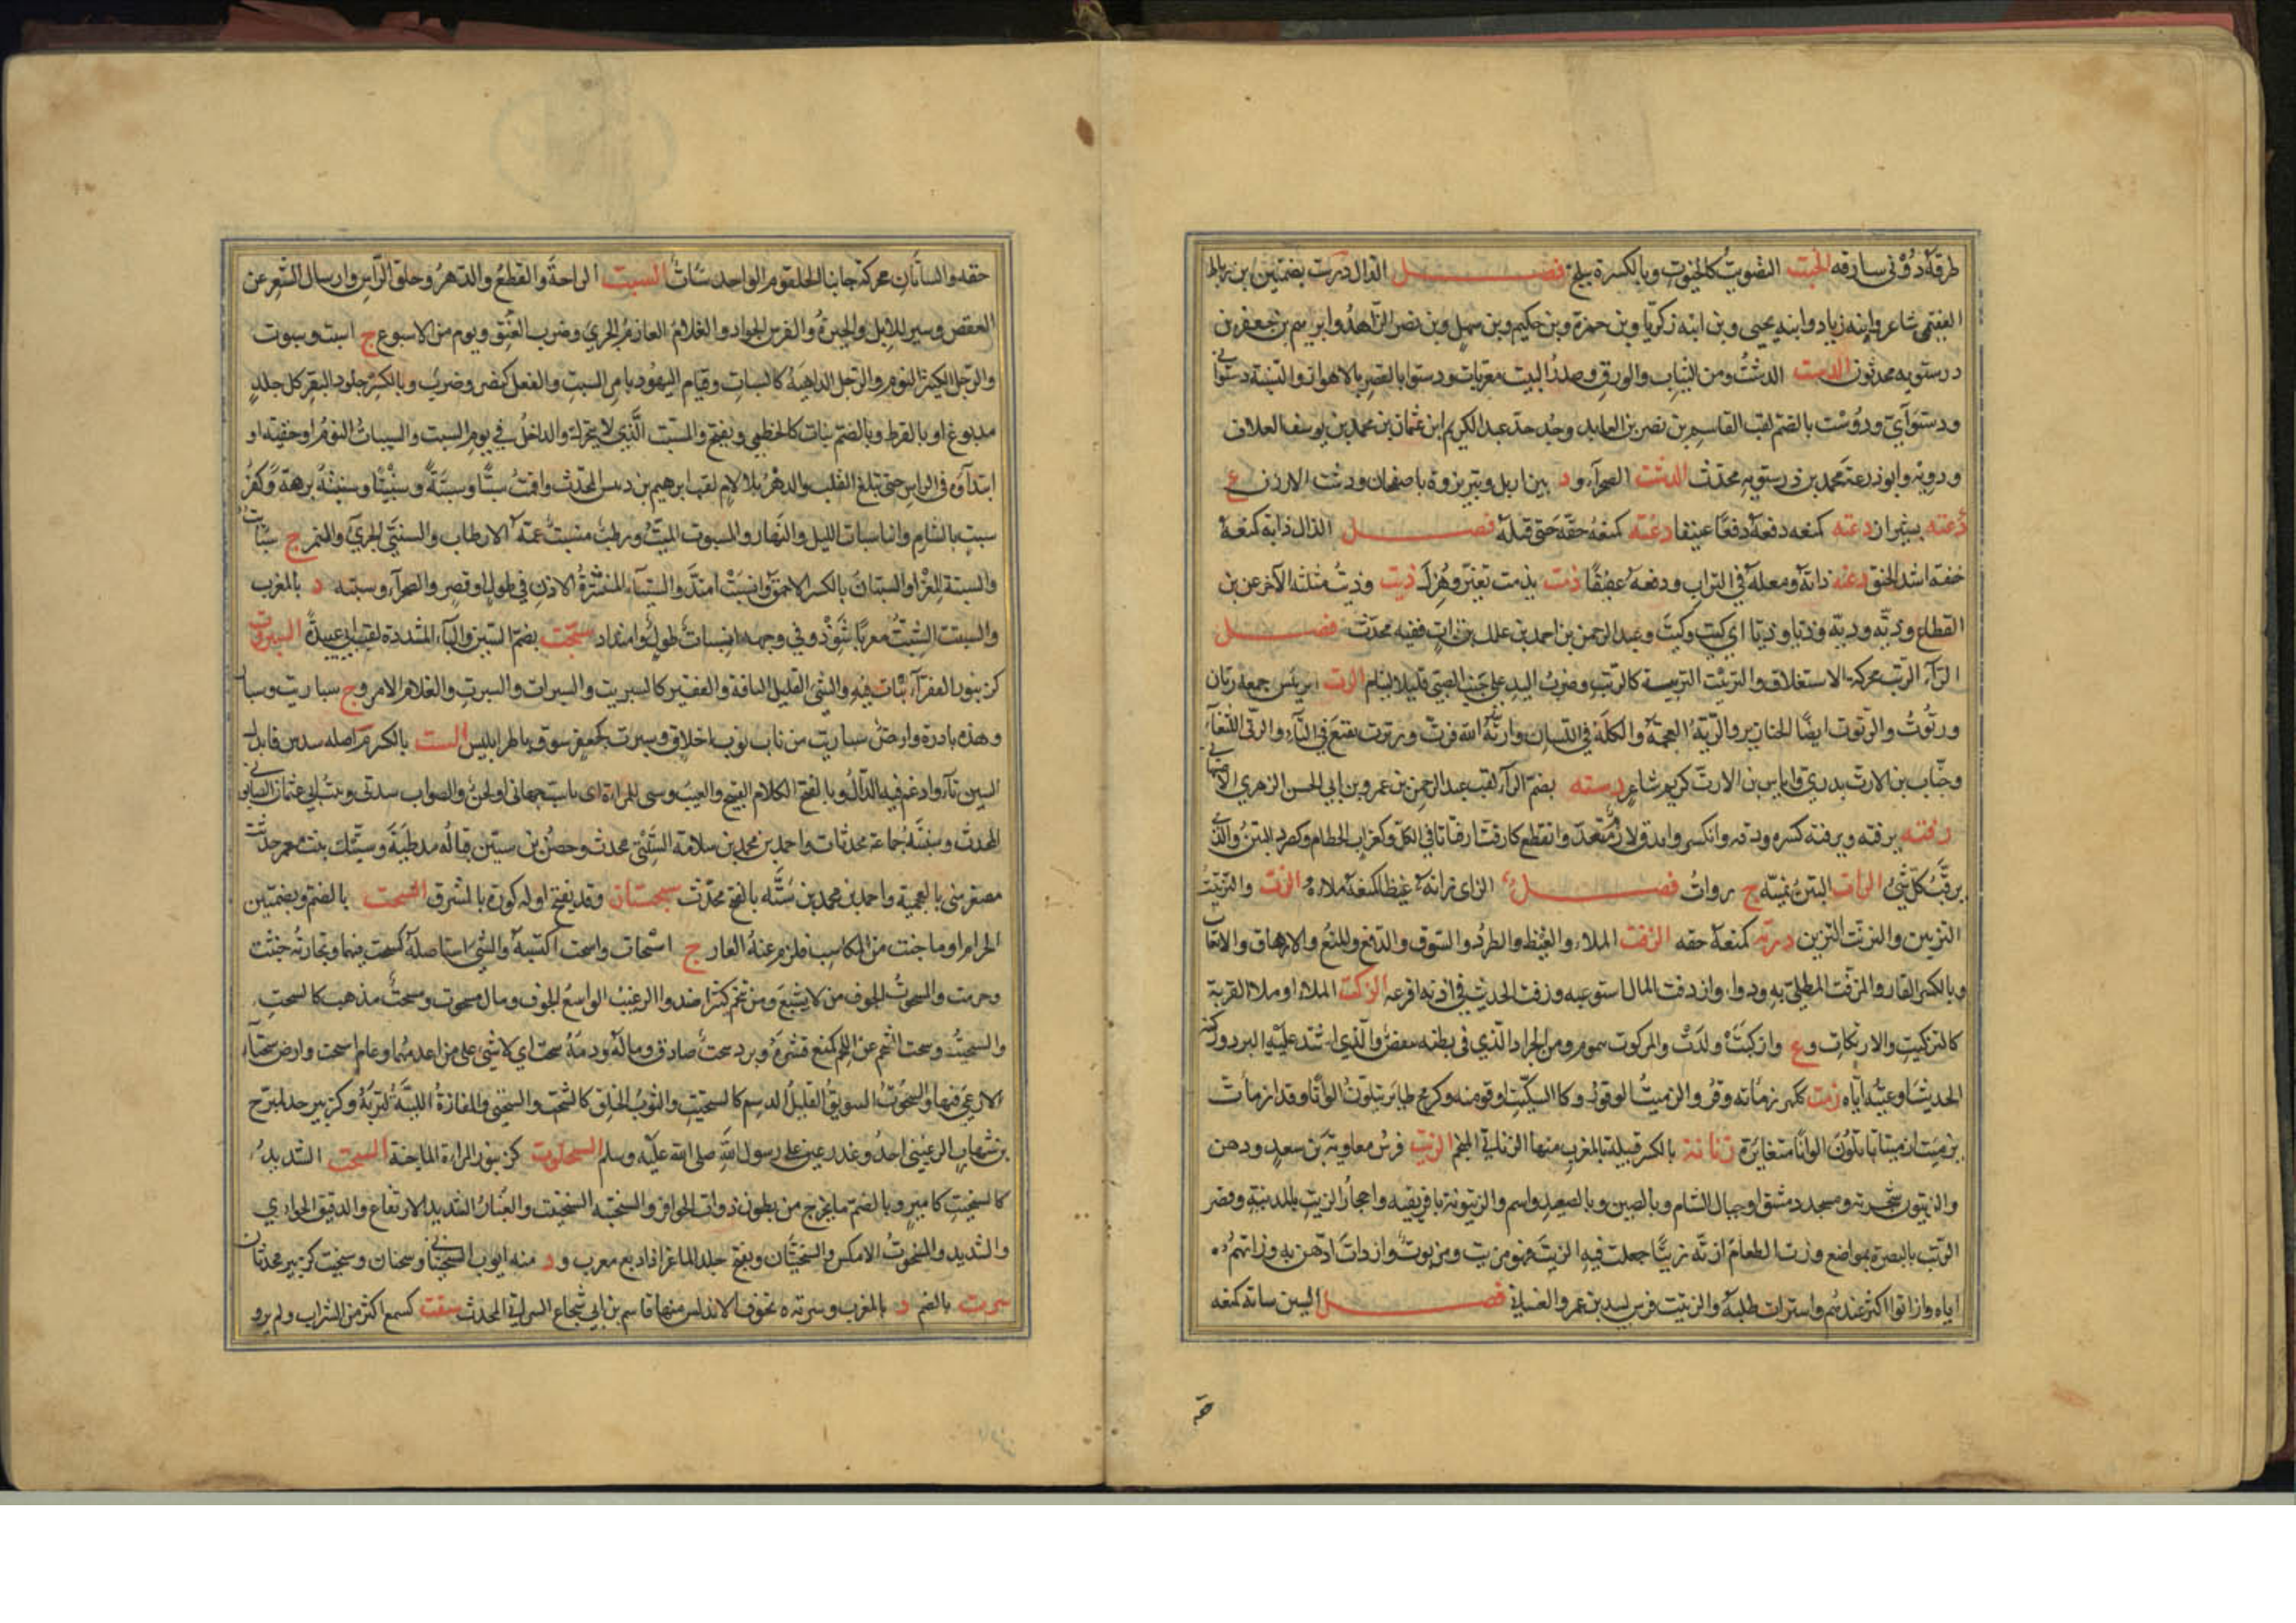 طرقه دون سارقه الخبت التصويت كالخوت وبالكسرة ببلخ فصل الدال درت بضمتين بن رباط
الفقيمى شاعر وابنه زياد وابنه يحيى وبن ابنه زكريا وبن حمزة وبن حكيم وبن سهل وبن نصر الزاهد وابرهيم بن جعفر بن
درستويه محدثون الدست الدشت ومن الثياب والورق وصدر البيت معربات ودستوا بالقصر بالاهواز والنسبة دستوانى
ودستوآى ودوست بالضم لقب القاسم بن نصر بن العابد وجد جد عبد الكريم ابن عثمان بن محمد بن يوسف العلاف
ودويه وابو زرعة محمد بن درستويه محدث الدشت الصحرآء ود بين اربل وتبريز وة باصفهان ودشت الارزن ع
بشيراز دعته كمنعه دفعه دفعا عنيفا دغته كمنعه خنقه حتى قتله فصل الذال ذاته كمنعه
خنقه اشد الخنق ذعته ذاته ومعكه فى التراب ودفعه عنيفا ذمت يذمت تغير وهزل ذيت وذيت مثلثة الآخر عن بن
القطاع وذيّه وذية وذيا وذيّا اى كيت وكيت وعبد الرحمن بن احمد بن علك بن ذات فقيه محدث فصل
الرآء الربت محركة الاستغلاق والتربيت التربية كالربت وضرب اليد على جنب الصبى قليلا لينام الرت الرئيس جمعه رتان
ورتوت والرتوت ايضا الخنازير والرتة العجمة والحكلة فى اللسان وارته الله فرت ورترت تعتع فى التآء والرتى اللثغآء
وخباب بن الارت بدرى واياس بن الارت كريم شاعر رسته بضم الرآء لقب عبد الرحمن بن عمر وبن ابى الحسن الزهرى الاصبهانى
رفته يرفته ويرفته كسره ودقه وانكسر واندق لازم متعد وانقطع كارفت ارفتاتا فى الكل وكغراب الحطام وكصرد التبن والذى
يرفت كل شئ الرات التبن يمنية ج روات فصل الزاى زاته غيظا كمنعه ملاه الزت والتزتيت
التزيين والتزتت التزين زرته كمنعه خنقه الزفت الملاء والغيظ والطرد والسوق والدفع والمنع والارهاق والاتعاب
وبالكسر القار والمزفت المطلى به ودوا وازدفت المال استوعبه وزفت الحديث فى اذنه افرغه الزكت الملاء او ملاء القربة
كالتزكيت والازكات وع وازكبت ولدت والمزكوت المهموم ومن الجراد الذى فى بطنه بيض والذى اشتد عليه البرد وزكته
الحديث اوعيته اياه زمت ككرم زماتة وقر والزميت الوقور وكالسكيت اوقر منه وكزمج طائر يتلون الوانا وقد ازمات
يزمئت ازمئتاتا يتلون الوانا متغايرة زناتة بالكسر قبيلة بالمغرب منها الزناتى المنجم الزيت فرس معاوية بن سعد ودهن
والزيتون شجرته ومسجد دمشق او جبال الشام وبالصين وبالصعيد واسم والزيتونة بافريقيه واحجار الزيت بالمدينة وقصر
الزيت بالبصرة مواضع وزت الطعام ازته زيتا جعلت فيه الزيت فهو مزيت ومزيوت وازدات ادهن به وزاتهم
اياه وازاتوا اكثر عندهم واستزات طلبه والزيتيت فرس لبيد بن عمرو الغسانى فصل السين ساته كمنعه
خنقه والساتان محركة جانبا الحلقوم الواحد سات السبت الراحة والقطع والدهر وحلق الراس وارسال الشعر عن
العقص وسير للابل والحيرة والفرس الجواد والغلام العارم الجرى وضرب العنق ويوم من الاسبوع ج اسبت وسبوت
والرجل الكثير النوم والرجل الداهية كالسبات وقيام اليهود بامر السبت والفعل كنصر وضرب وبالكسر جلود البقر كل جلد
مدبوغ او بالقرظ وبالضم نبات كالخطمى ويفتح والمسبت الذى لا يتحرك والداخل فى يوم السبت والسبات النوم او خفيته او
ابتداؤه فى الراس حتى تبلغ القلب والدهر بلا لام لقب ابرهيم بن دبيس المحدث واقمت سبتا وسبتة وسنبتا وسنبتة برهة وكفر
سبت بالشام وابنا سبات الليل والنهار والمسبوت الميت ورطب منسبت عمه الارطاب والسبنتى الجرى والنمر ج سبانت
والسبتة المعزا والسبتان بالكسر الاحمق وانسبت امتد والسبتاء المنتشرة الاذن فى طول او قصر والصحرآء وسبته د بالمغرب
والسبت الشبت معربا شوذ وفى وجهه انسبات طول وامتداد سبخت بضم السين والبآء المشددة لقب ابى عبيدة السبروت
كزنبور القفر لا نبات فيه والشئ القليل التافه والفقير كالسبريت والسبرات والسبرت والغلام الامرد ج سباريت وسبار
وهذه نادرة وارض سباريت من باب ثوب اخلاق وسبرت كجعفر سوق باطرابلس الست بالكسر م اصله سدس فابدل
السين تآء وادغم فيه الدال وبالفتح الكلام القبيح والعيب وستى للمراة اى ياست جهاتى او لحن والصواب سيدتى وبنت ابى عثمان الصابونى
المحدث وستيتة جماعة محدثات واحمد بن محمد بن سلامة الستيتى محدث وحصن بن ستين قبالة مدطبة وستيك بنت معمر حدثت
مصغر ستى بالعجمية واحمد بن محمد بن سته بالفتح محدث سجستان وقد يفتح اوله كورة بالمشرق السحت بالضم وبضمتين
الحرام او ما خبث من المكاسب فلزم عنه العار ج اسحات واسحت اكتسبه والشئ استاصله كسحت فيهما وتجارته خبثت
وحرمت والسحوت الجوف من لا يشبع ومن يتخم كثيرا ضد والرغيب الواسع الجوف ومال مسحوت وسحت مذهب كالسحت
والسحيت وسحت الشحم عن اللحم كمنع قشره وبرد سحت صادق وماله ودمه سحت اى لا شئ على من اعدمهما وعام اسحت وارض سحتآء
لا رعى فيهما والسحوت السويق القليل الدسم كالسحتيت والثوب الخلق كالسحت والسحتى والمفازة اللينة التربة وكزبير جد لبرح
بن شهاب الرعينى احد وفد رعين على رسول الله صلى الله عليه وسلم السحلوت كزنبور المراة الماجنة السخت الشديد
كالسخيت كامير وبالضم ما يخرج من بطون ذوات الحوافر والسختيت السختيت والغبار الشديد الارتفاع والدقيق الحوارى
والشديد والسخوت الاملس والسختيان ويفتح جلد الماعز اذا دبغ معرب ود منه ايوب السختيانى وسختان وسخيت كزبير محدثان
سرت بالضم د بالمغرب وسرته ة بجوف الاندلس منها قاسم بن ابى شجاع السرتى المحدث سفت كسمع اكثر من الشراب ولم يرو